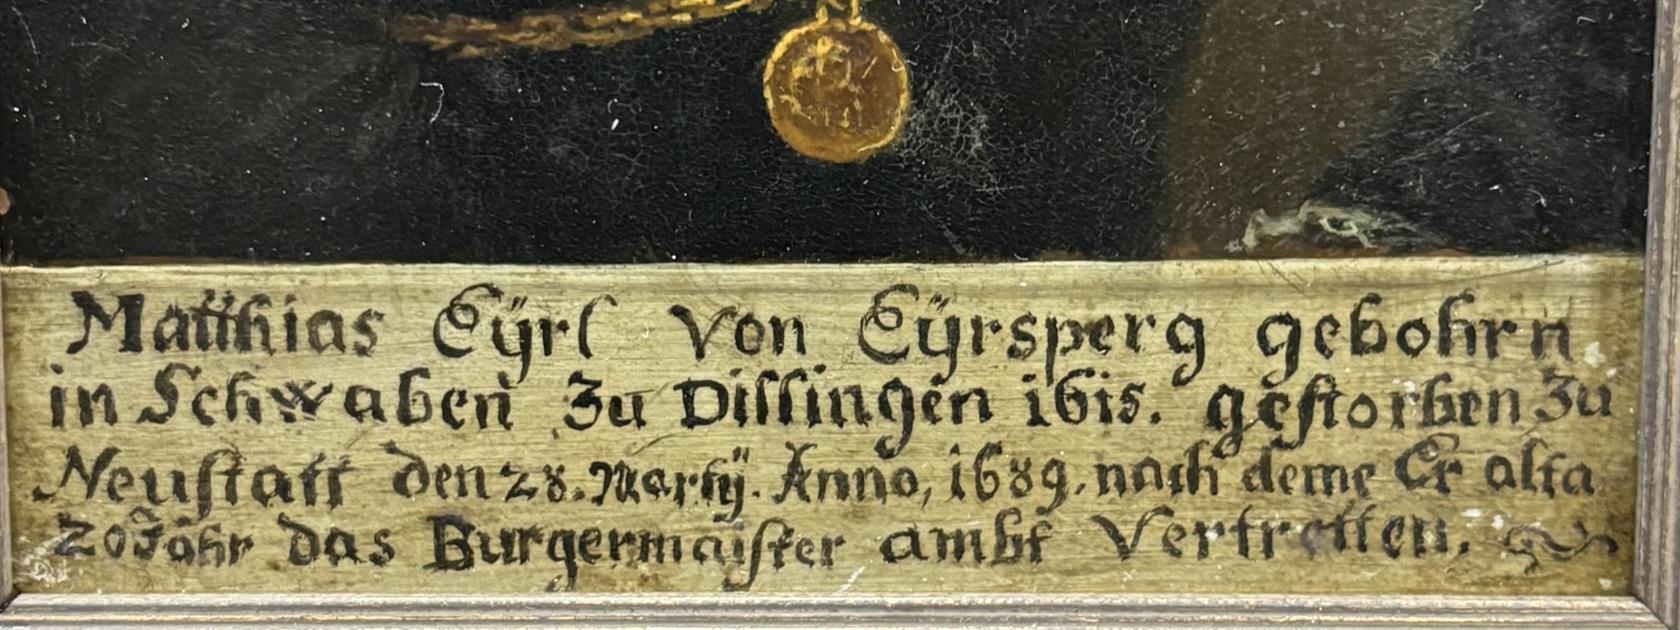 Matthias Eÿrl von Eÿrsperg gebohrn
in Schwaben Zu Dillingen 1615. gestorben Zu
Neustatt den 28. Martij. Anno, 1689. nach deme Er alfa
20 Jahr das Burgermaister ambt Vertretten.